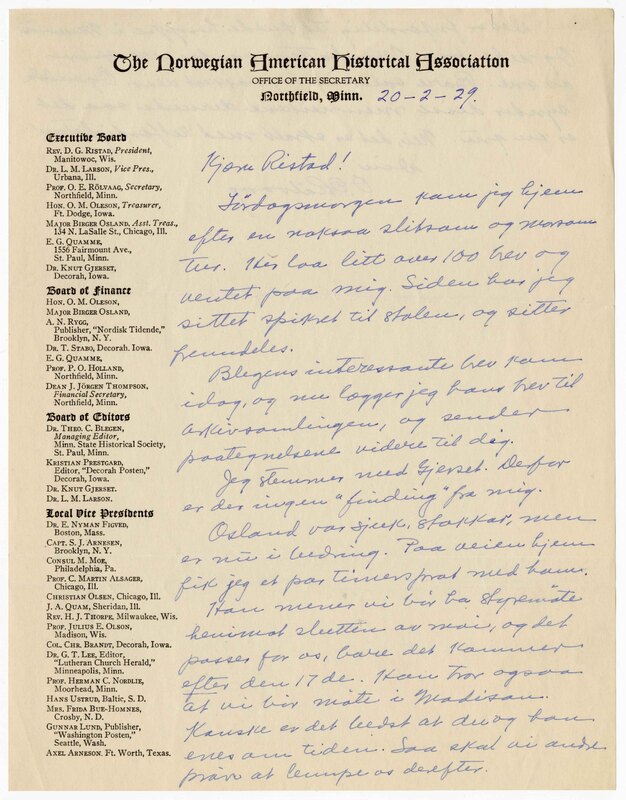 The Norwegian American Historical Association
OFFICE OF THE SECRETARY
Northfield, Minn. 20-2-29.
Executive Board
REV. D. G. RISTAD, President,
Manitowoc, Wis.
DR. L. M. LARSON, Vice Pres.,
Urbana, Ill.
PROF. O. E. RÖLVAAG, Secretary,
Northfield, Minn.
HON. O. M. OLESON, Treasurer,
Ft. Dodge, Iowa.
MAJOR BIRGER OSLAND, Asst. Treas.,
134 N. LaSalle St., Chicago, Ill.
E. G. QUAMME,
1556 Fairmount Ave.,
St. Paul, Minn.
DR. KNUT GJERSET,
Decorah, Iowa.
Board of Finance
HON. O. M. OLESON,
MAJOR BIRGER OSLAND,
A. N. RYGG,
Publisher, "Nordisk Tidende,"
Brooklyn, N. Y.
DR. T. STABO, Decorah. Iowa.
E. G. QUAMME,
PROF. P. O. HOLLAND,
Northfield, Minn.
DEAN J. JÖRGEN THOMPSON,
Financial Secretary,
Northfield, Minn.
Board of Editors
DR. THEO. C. BLEGEN,
Managing Editor,
Minn. State Historical Society,
St. Paul, Minn.
KRISTIAN PRESTGARD,
Editor, "Decorah Posten,"
Decorah, Iowa.
DR. KNUT GJERSET.
DR. L. M. LARSON.
Local Vice Presidents
DR. E. NYMAN FIGVED,
Boston, Mass.
CAPT. S. J. ARNESEN,
Brooklyn, N. Y.
CONSUL M. MOE,
Philadelphia, Pa.
PROF. C. MARTIN ALSAGER,
Chicago, Ill.
CHRISTIAN OLSEN, Chicago, Ill.
J. A. QUAM, Sheridan, Ill.
REV. H. J. THORPE, Milwaukee, Wis.
PROF. JULIUS E. OLSON,
Madison, Wis.
COL. CHR. BRANDT, Decorah, Iowa.
DR. G. T. LEE, Editor,
"Lutheran Church Herald,"
Minneapolis, Minn.
PROF. HERMAN C. NORDLIE,
Moorhead, Minn.
HANS USTRUD, Baltic, S. D.
MRS. FRIDA BUE-HOMNES,
Crosby, N. D.
GUNNAR LUND, Publisher,
"Washington Posten,"
Seattle, Wash.
AXEL ARNESON. Ft. Worth, Texas.
Kjære Ristad!
Lördagsmorgen kam jeg hjem
efter en noksaa slitsom og morsom
tur. Her laa litt over 100 brev og
ventet paa mig. Siden har jeg
sittet spikret til stolen, og sitter
fremdeles.
Blegens interessante brev kom
idag, og nu lægger jeg hans brev til
arkivsamlingen, og sender
paategnelsene videre til dig.
Jeg stemmer med Gjerset. Derfor
er der ingen "finding" fra mig.
Osland var sjuk, stakkar, men
er nu i bedring. Paa veien hjem
fik jeg et par timersprat med ham.
Han mener vi bör ha styremöte
henimot slutten av mai, og det
passer for os, bare det kommer
efter den 17de. Han tror ogsaa
at vi bör möte i Madison.
Kanske er det bedst at du og han
enes om tiden. Saa skal vi andre
pröve at lempe os derefter.